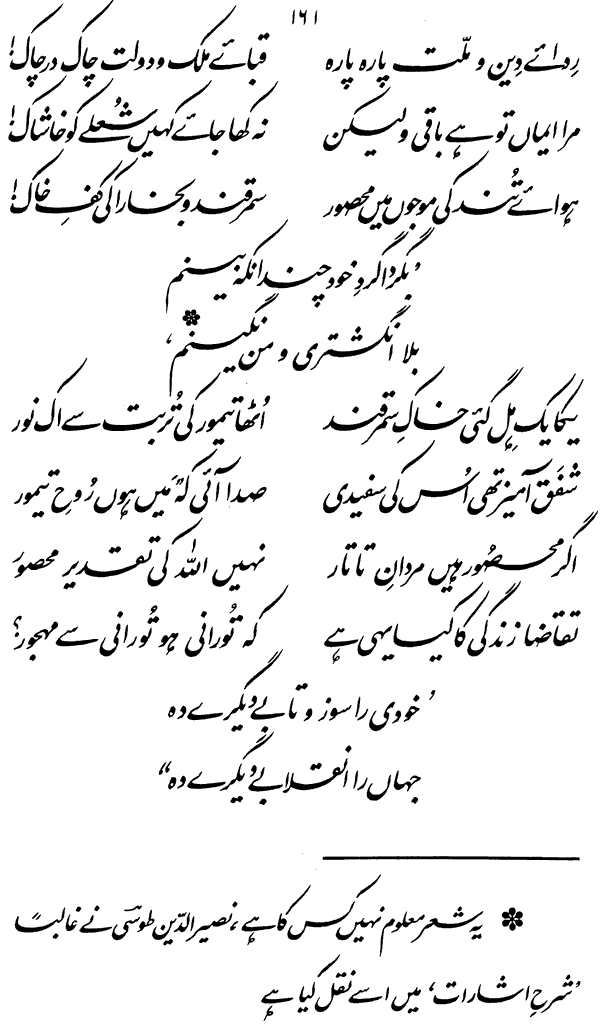 ۱۶۱
رِدائے دِین و ملّت پارہ پارہ قبائے ملک و دولت چاک در چاک!
مرا ایماں تو ہے باقی ولیکن نہ کھا جائے کہیں شُعلے کو خاشاک!
ہوائے تُند کی موجوں میں محصور سمرقند و بخارا کی کفِ خاک!
’بگرداگردِ خود چندانکہ بینم
بلا انگشتری و من نگینم‘ ٭
یکایک ہِل گئی خاکِ سمرقند اُٹھا تیمور کی تُربت سے اک نور
شفَق آمیز تھی اُس کی سفیدی صدا آئی کہ ”مَیں ہوں رُوحِ تیمور
اگر محصُور ہیں مردانِ تاتار نہیں اللہ کی تقدیر محصور
تقاضا زندگی کا کیا یہی ہے کہ تُورانی ہو تُورانی سے مہجور؟
’خودی را سوز و تابے دیگرے دہ
جہاں را انقلابے دیگرے دہ“
٭ یہ شعر معلوم نہیں کس کا ہے، نصیر الدّین طوسی نے غالباً
’شرحِ اشارات‘ میں اسے نقل کیا ہے